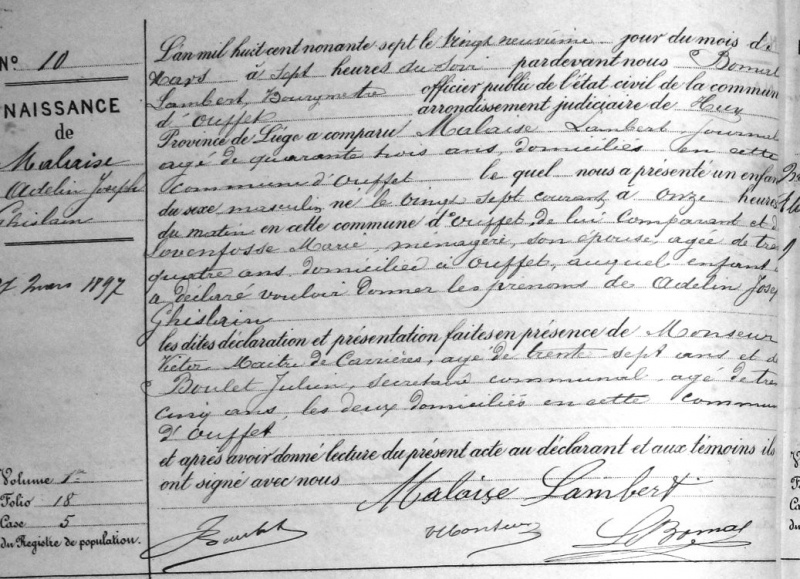 N° 10
NAISSANCE
de
Malaise
Adelin Joseph
Ghislain
27 mars 1897
Volume 1er
Folio 18
Case 5
du Registre de population.
L'an mil huit cent nonante sept le vingt neuvième jour du mois de
Mars à sept heures du soir pardevant nous Bomal
Lambert, Bourgmestre officier public de l'état civil de la commun
d'Ouffet arrondissement judiciaire de Huy
Province de Liége a comparu Malaise Lambert, journal
agé de quarante trois ans, domicilié en cette
commune d'Ouffet le quel nous a présenté un enfan
du sexe masculin né le vingt sept courant à onze heures
du matin en cette commune d'Ouffet, de lui comparant et d
Lovenfosse Marie, ménagère, son épouse, agée de tre
quatre ans domiciliée à Ouffet, auquel enfant
a déclaré vouloir donner les prénoms de Adelin Josep
Ghislain
les dites déclaration et présentation faites en présence de Monseur
Victor Maitre de Carrières, agé de trente sept ans et de
Boulet Julien, secretaire communal, agé de tre
cinq ans, les deux domiciliés en cette commun
d'Ouffet
et après avoir donné lecture du présent acte au déclarant et aux témoins ils
ont signé avec nous Malaise Lambert
JBoulet VMonseur LBomal